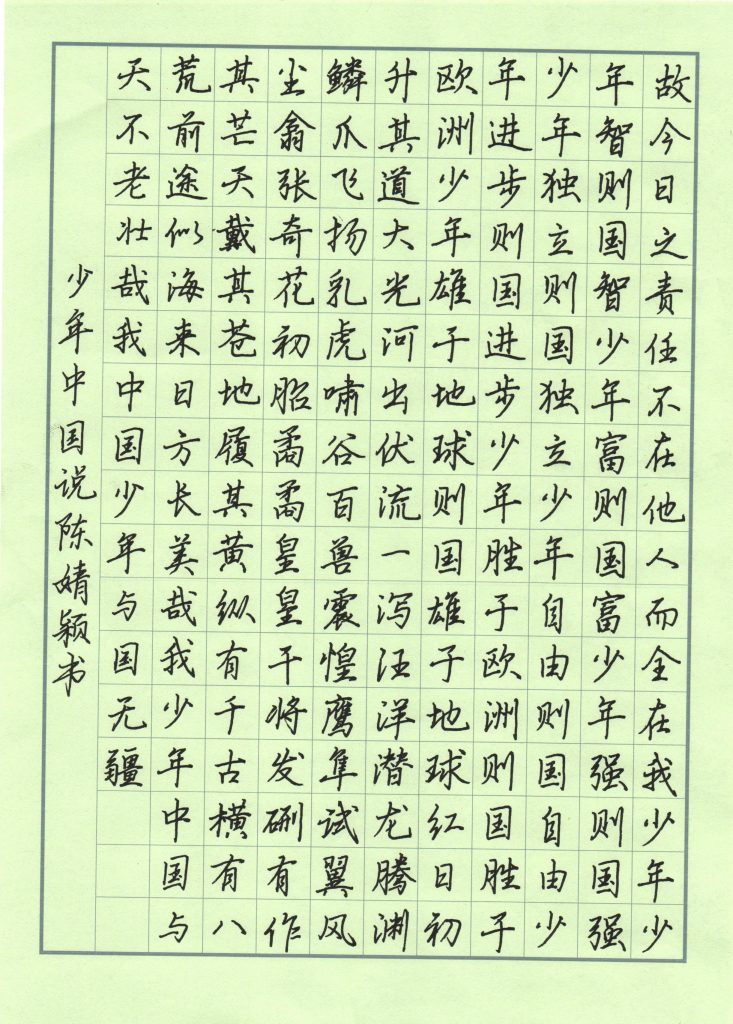 故今日之责任不在他人而全在我少年少
年智则国智少年富则国富少年强则国强
少年独立则国独立少年自由则国自由少
年进步则国进步少年胜于欧洲则国胜于
欧洲少年雄于地球则国雄于地球红日初
升其道大光河出伏流一泻汪洋潜龙腾渊
鳞爪飞扬乳虎啸谷百兽震惶鹰隼试翼风
尘翕张奇花初胎矞矞皇皇干将发硎有作
其芒天戴其苍地履其黄纵有千古横有八
荒前途似海来日方长美哉我少年中国与
天不老壮哉我中国少年与国无疆
少年中国说陈婧颖书